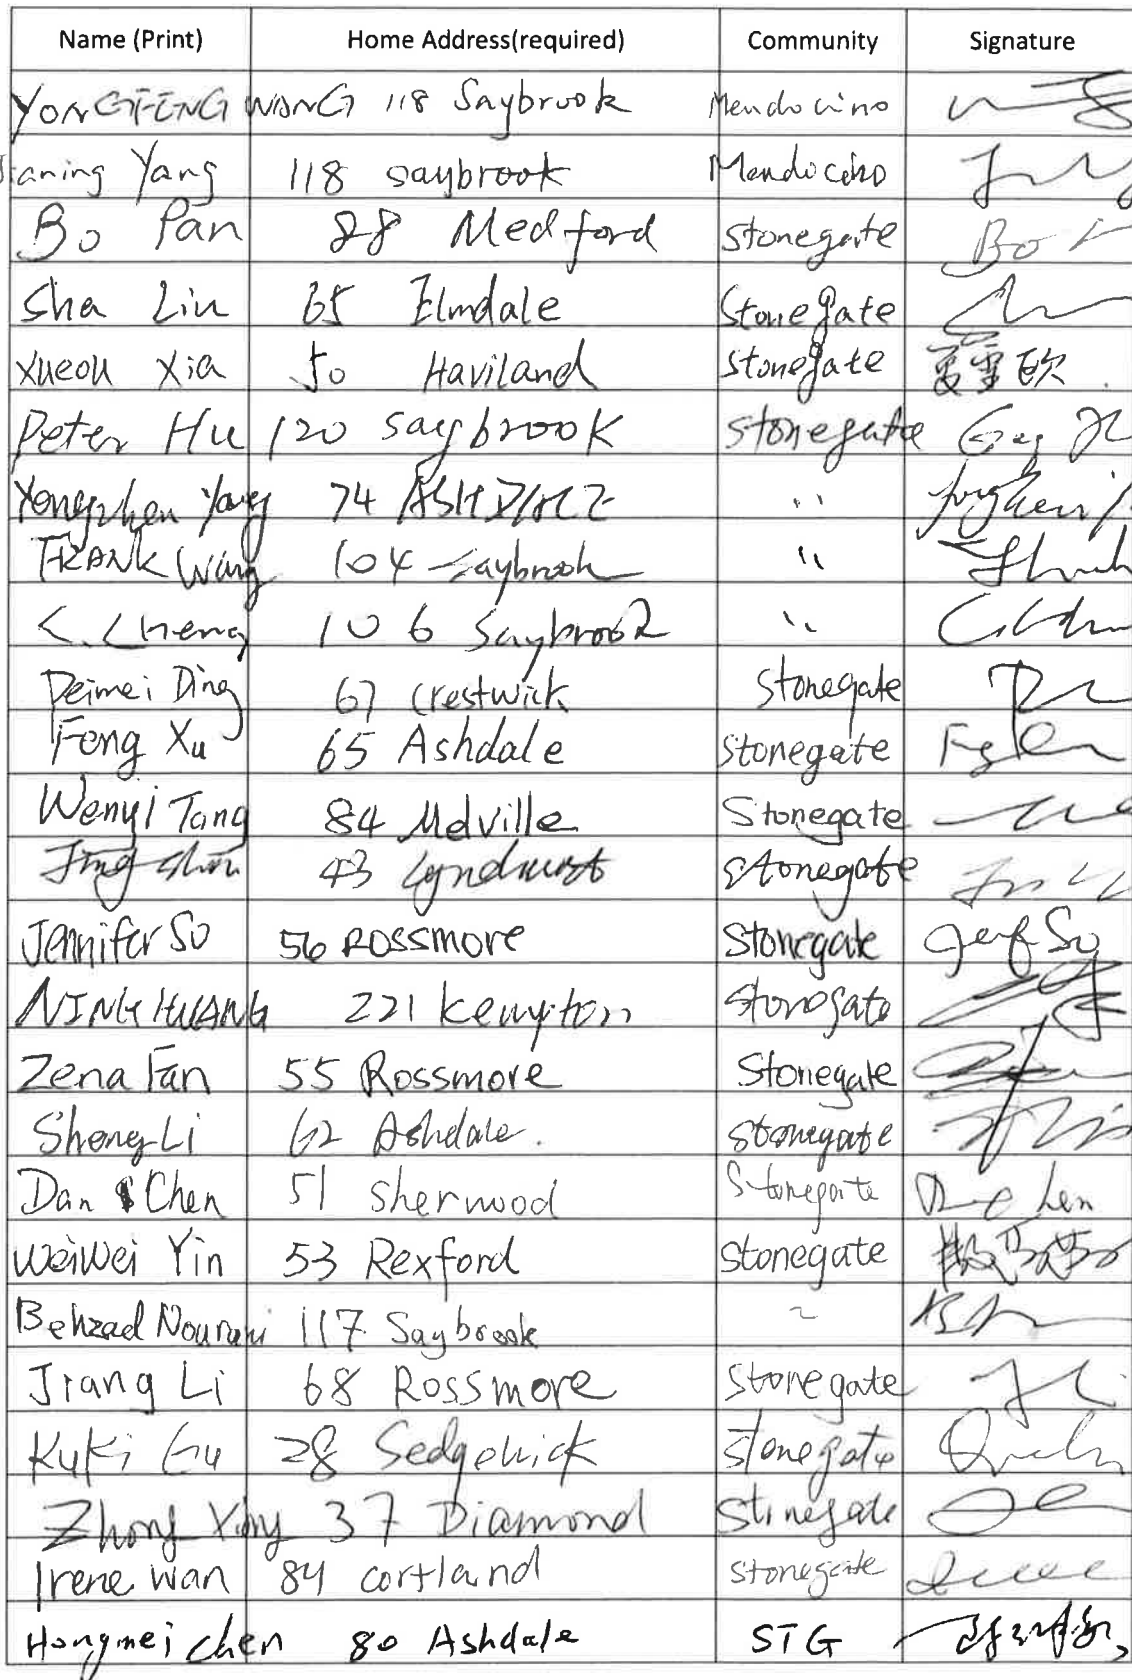 Name (Print) Home Address(required) Community Signature
YONGFENG WANG 118 Saybrook Mendocino
Yang 118 saybrook Mendocino
Bo Pan 88 Medford stonegate Bo
Sha Liu 65 Elmdale Stonegate
Xueou Xia 50 Haviland stonegate
Peter Hu 120 saybrook stonegate
Yongzhen Yang 74 ASHDALE "
FRANK Wang 104 Saybrook "
C. Cheng 106 Saybrook "
Peimei Ding 67 Crestwick Stonegate
Feng Xu 65 Ashdale Stonegate
Wenyi Tang 84 Melville Stonegate
Jing 43 Lyndhurst Stonegate
Jennifer So 56 ROSSMORE Stonegate Jenf So
NING HUANG 221 Kempton Stonegate
Zena Fan 55 Rossmore Stonegate
Sheng Li 62 Ashdale. stonegate
Dan Chen 51 Sherwood Stonegate
WeiWei Yin 53 Rexford Stonegate
Behzad Nourani 117 Saybrook
Jiang Li 68 Rossmore Stonegate
Kuki Gu 28 Sedgewick Stonegate
Zhong Xing 37 Diamond Stonegate
Irene Wan 84 cortland stonegate
Hongmei chen 80 Ashdale STG